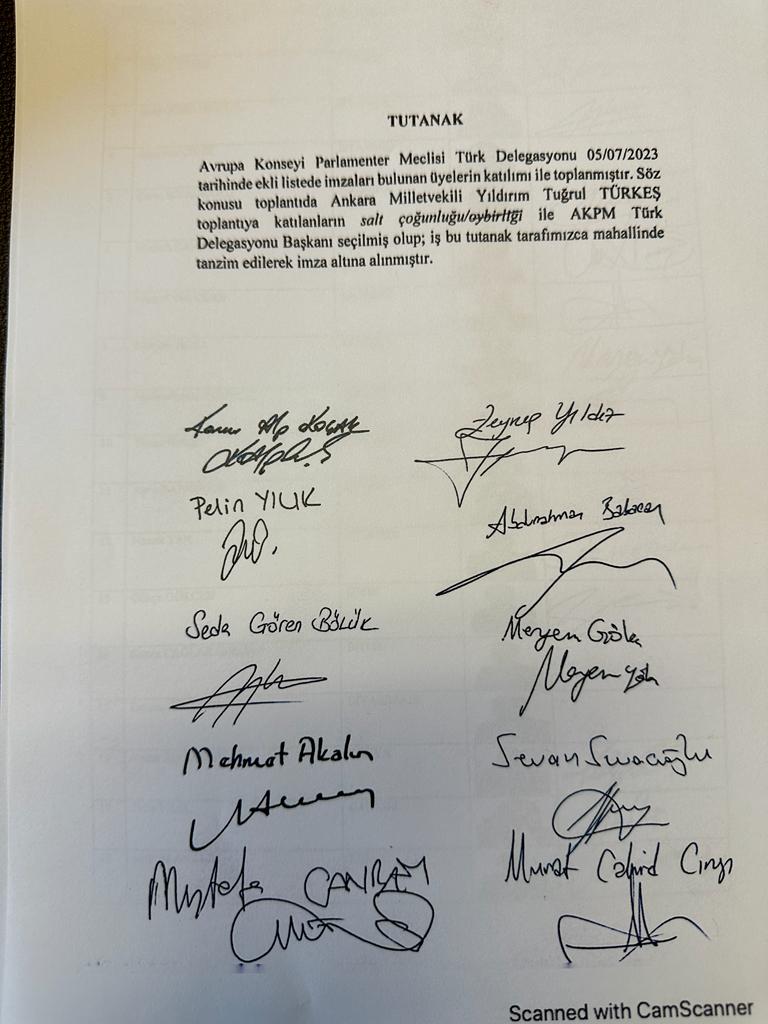 TUTANAK
Avrupa Konseyi Parlamenter Meclisi Türk Delegasyonu 05/07/2023
tarihinde ekli listede imzaları bulunan üyelerin katılımı ile toplanmıştır. Söz
konusu toplantıda Ankara Milletvekili Yıldırım Tuğrul TÜRKEŞ
toplantıya katılanların salt çoğunluğu/oybirliği ile AKPM Türk
Delegasyonu Başkanı seçilmiş olup; iş bu tutanak tarafımızca mahallinde
tanzim edilerek imza altına alınmıştır.
Alp Zeynep Yıldız
Pelin YILIK
Abdurrahman Babacan
Seda Gören BÖLÜK
Meryem Göka
Mehmet Akalın
Sevan Sıvacıoğlu
Mustafa CANBEY
Murat Cahid Cıngı
Scanned with CamScanner